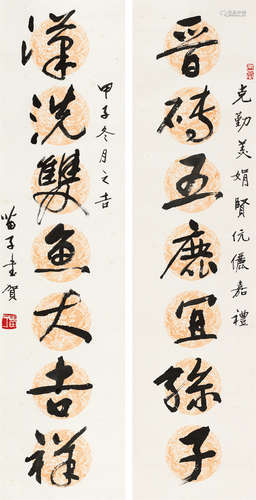 克勤美娟賢伉儷嘉禮
晋磚五鹿宜孫子
漢洗雙魚大吉祥
甲子冬月之吉
苗子書賀